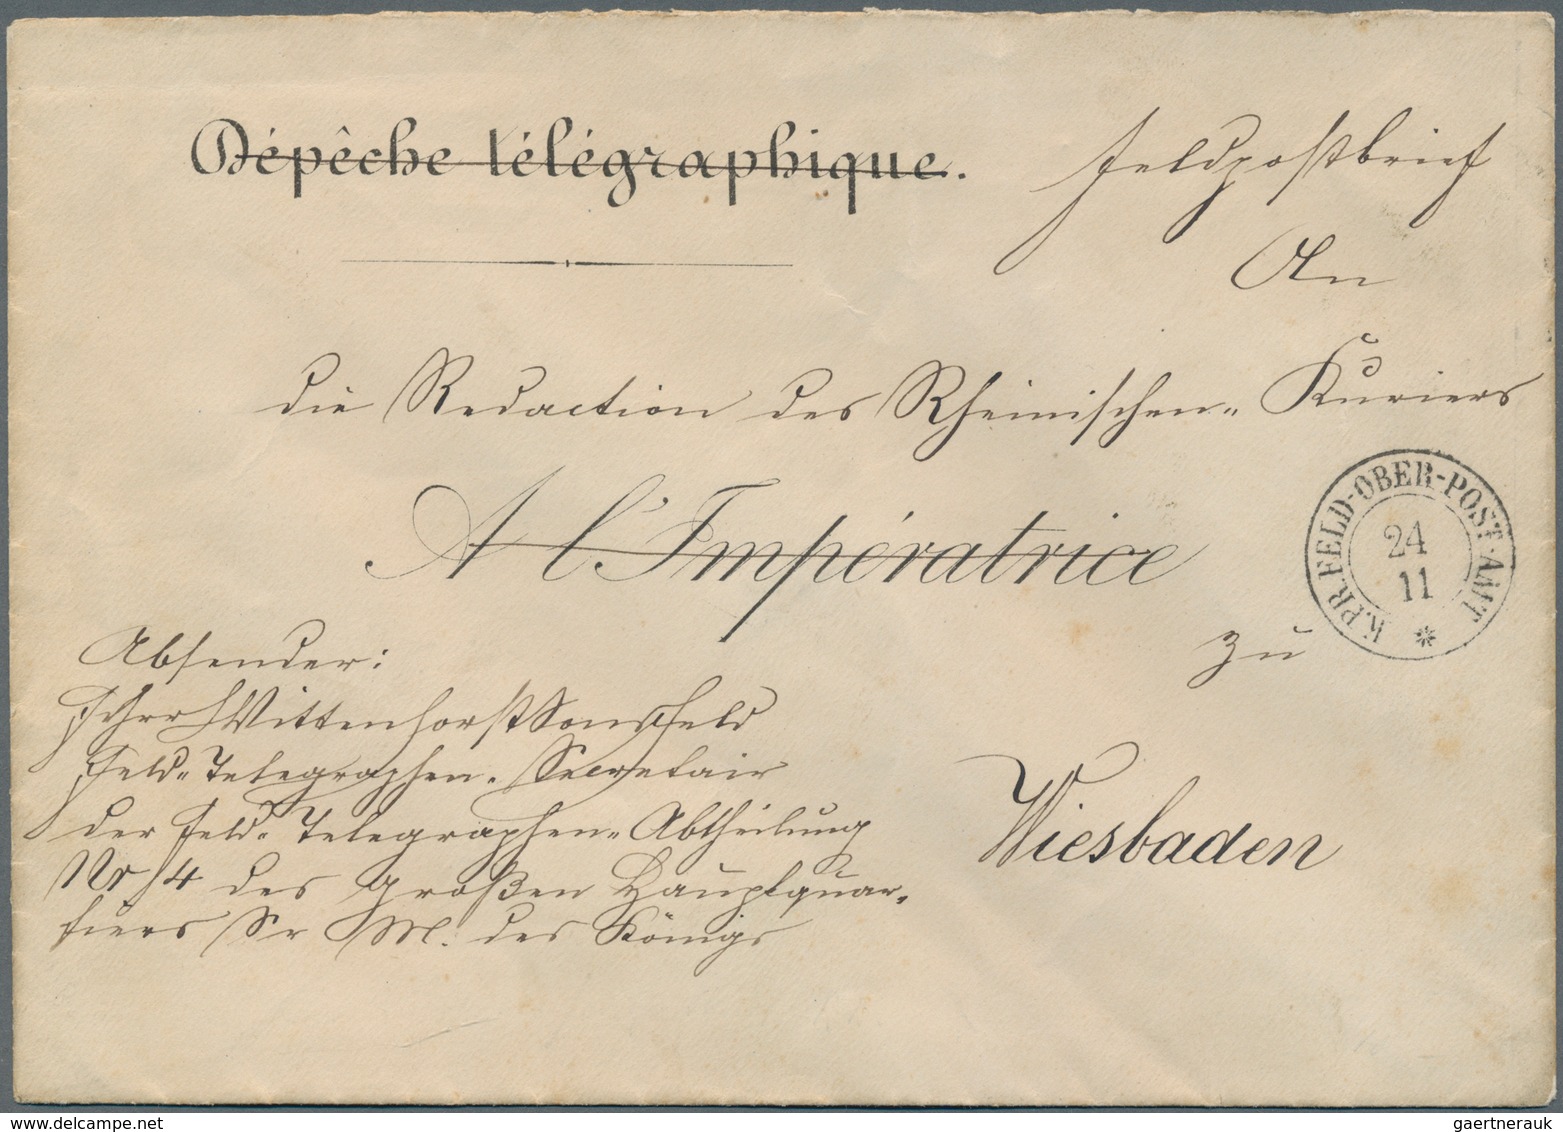 Dépêche télégraphique.
Feldpostbrief
An
die Redaction des Rheinischen- Kuriers
A l'Impératrice
K.PR.FELD-OBER-POST-AMT
24
11
zu
Wiesbaden
Absender:
Fhrr v Wittenhorst Sonsfeld
Feld-Telegraphen-Secretair
der Feld-Telegraphen-Abtheilung
Nr 4 des Großen Hauptquar-
tiers Sr M. des Königs
gaertnerauk